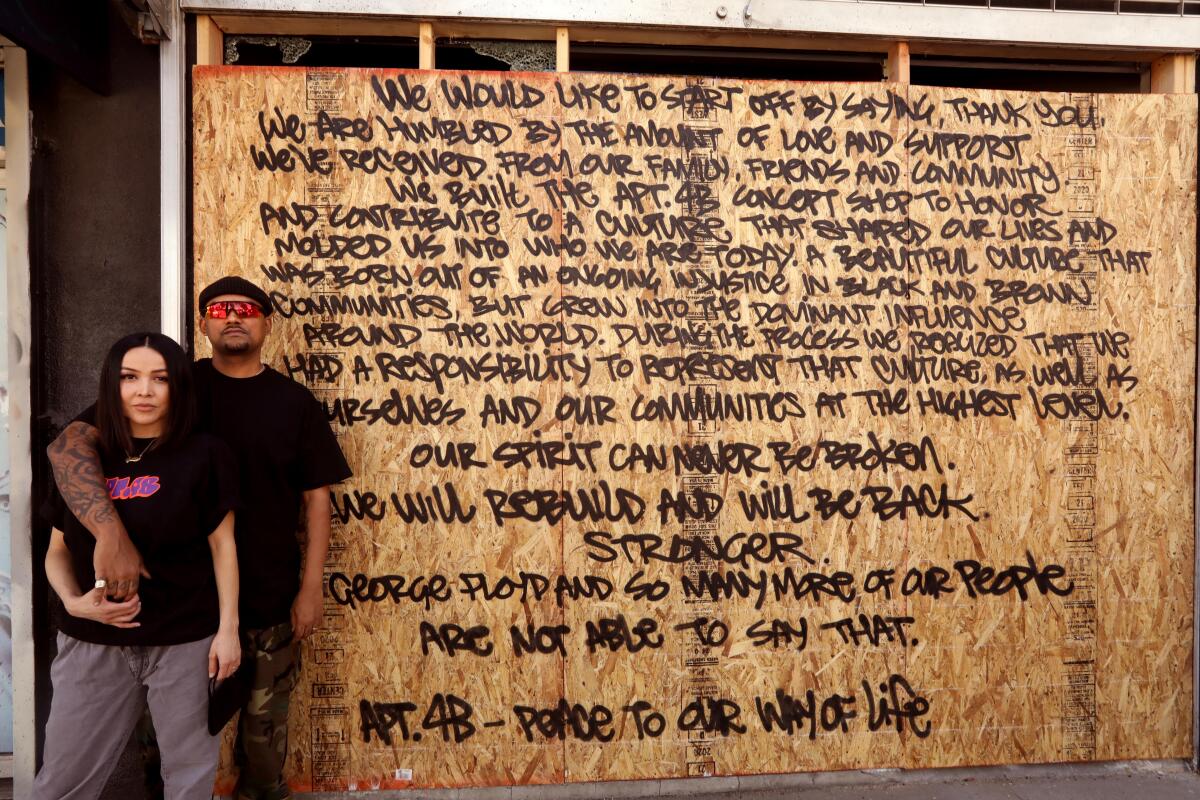 WE WOULD LIKE TO START OFF BY SAYING, THANK YOU.
WE ARE HUMBLED BY THE AMOUNT OF LOVE AND SUPPORT
WE'VE RECEIVED FROM OUR FAMILY, FRIENDS AND COMMUNITY
WE BUILT THE APT. 4B CONCEPT SHOP TO HONOR
AND CONTRIBUTE TO A CULTURE THAT SHAPED OUR LIVES AND
MOLDED US INTO WHO WE ARE TODAY. A BEAUTIFUL CULTURE THAT
WAS BORN OUT OF AN ONGOING INJUSTICE IN BLACK AND BROWN
COMMUNITIES, BUT GREW INTO THE DOMINANT INFLUENCE
AROUND THE WORLD. DURING THE PROCESS WE REALIZED THAT WE
HAD A RESPONSIBILITY TO REPRESENT THAT CULTURE, AS WELL AS
URSELVES AND OUR COMMUNITIES AT THE HIGHEST LEVEL.
OUR SPIRIT CAN NEVER BE BROKEN.
WE WILL REBUILD AND WILL BE BACK.
STRONGER.
GEORGE FLOYD AND SO MANY MORE OF OUR PEOPLE
ARE NOT ABLE TO SAY THAT.
APT. 4B - PEACE TO OUR WAY OF LIFE